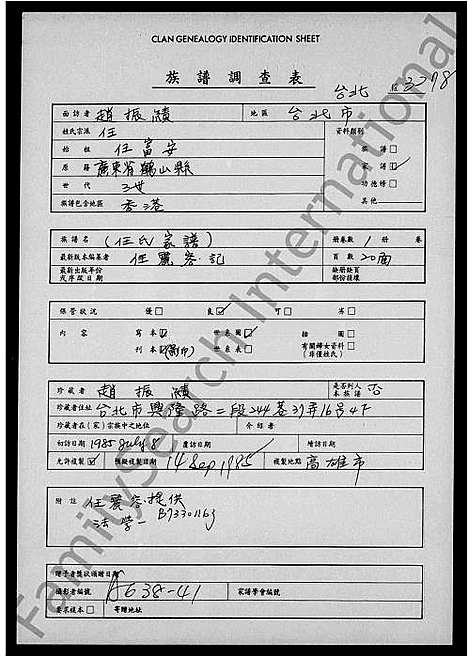 CLAN GENEALOGY IDENTIFICATION SHEET
族譜調查表
台北 3278
面訪者 趙振績 地區 台北市
姓氏宗派 任 資料類别
始祖 任富安 族譜□
原籍 廣東省鶴山縣 家譜☑
世代 3世 功德榜□
族譜包含地區 香港 其他
族譜名 (任氏家譜) 册卷數 1 册 卷
最新版本編纂者 任麗容.記 頁數 20面
最新出版年份 缺册缺頁
或序跋日期 部份損壞
保管狀況 優□ 良☑ 可□ 劣□
内容 寫本☑ 世系圖☑ 插圖□
刊本 世系表□ 有關婦女資料□
(非僅姓氏)
珍藏者 趙振績 是否列入本族譜 否
珍藏者住址 台北市興隆路二段244巷37弄16号4下
珍藏者在(家)宗族中之地位 介紹者
初訪日期 1985 July 8 覆訪日期 增訪日期
允許複製☑ 擬複製日期 14 Sep 1985 複製地點 高雄市
附註 任麗容.提供
法學一 B7330163
贈予者獎狀頒贈日期
攝影者編號 A638-41 家譜學會編號
要求複本□ 寄贈地址
FamilySearch International